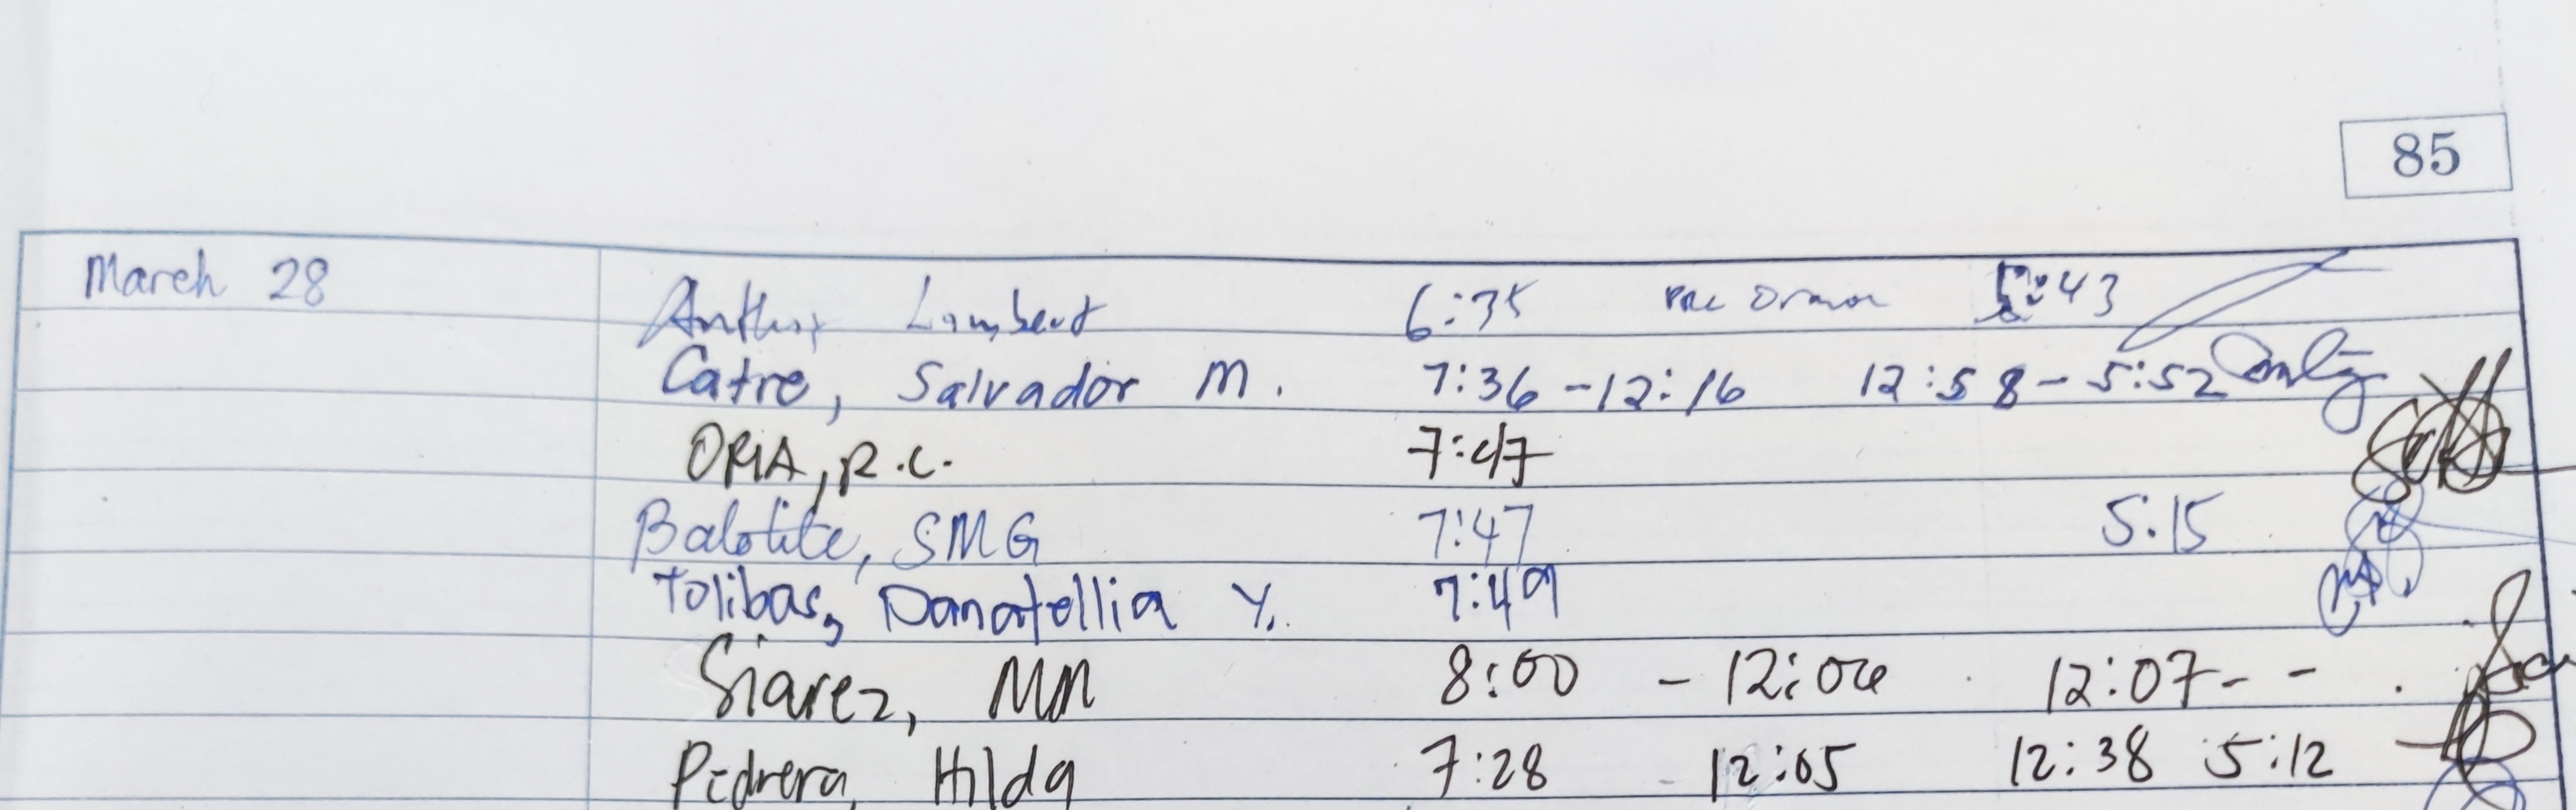 85
March 28
Anthony Lambert 6:35 5:43
Catre, Salvador M. 7:36 - 12:16 12:58 - 5:52
ORIA, R.C. 7:47
Balotite, SMG 7:47 5:15
Tolibas, Danatellia Y. 7:49
Siarez, MM 8:00 - 12:06 12:07 - -
Pedrera, Hilda 7:28 12:05 12:38 5:12